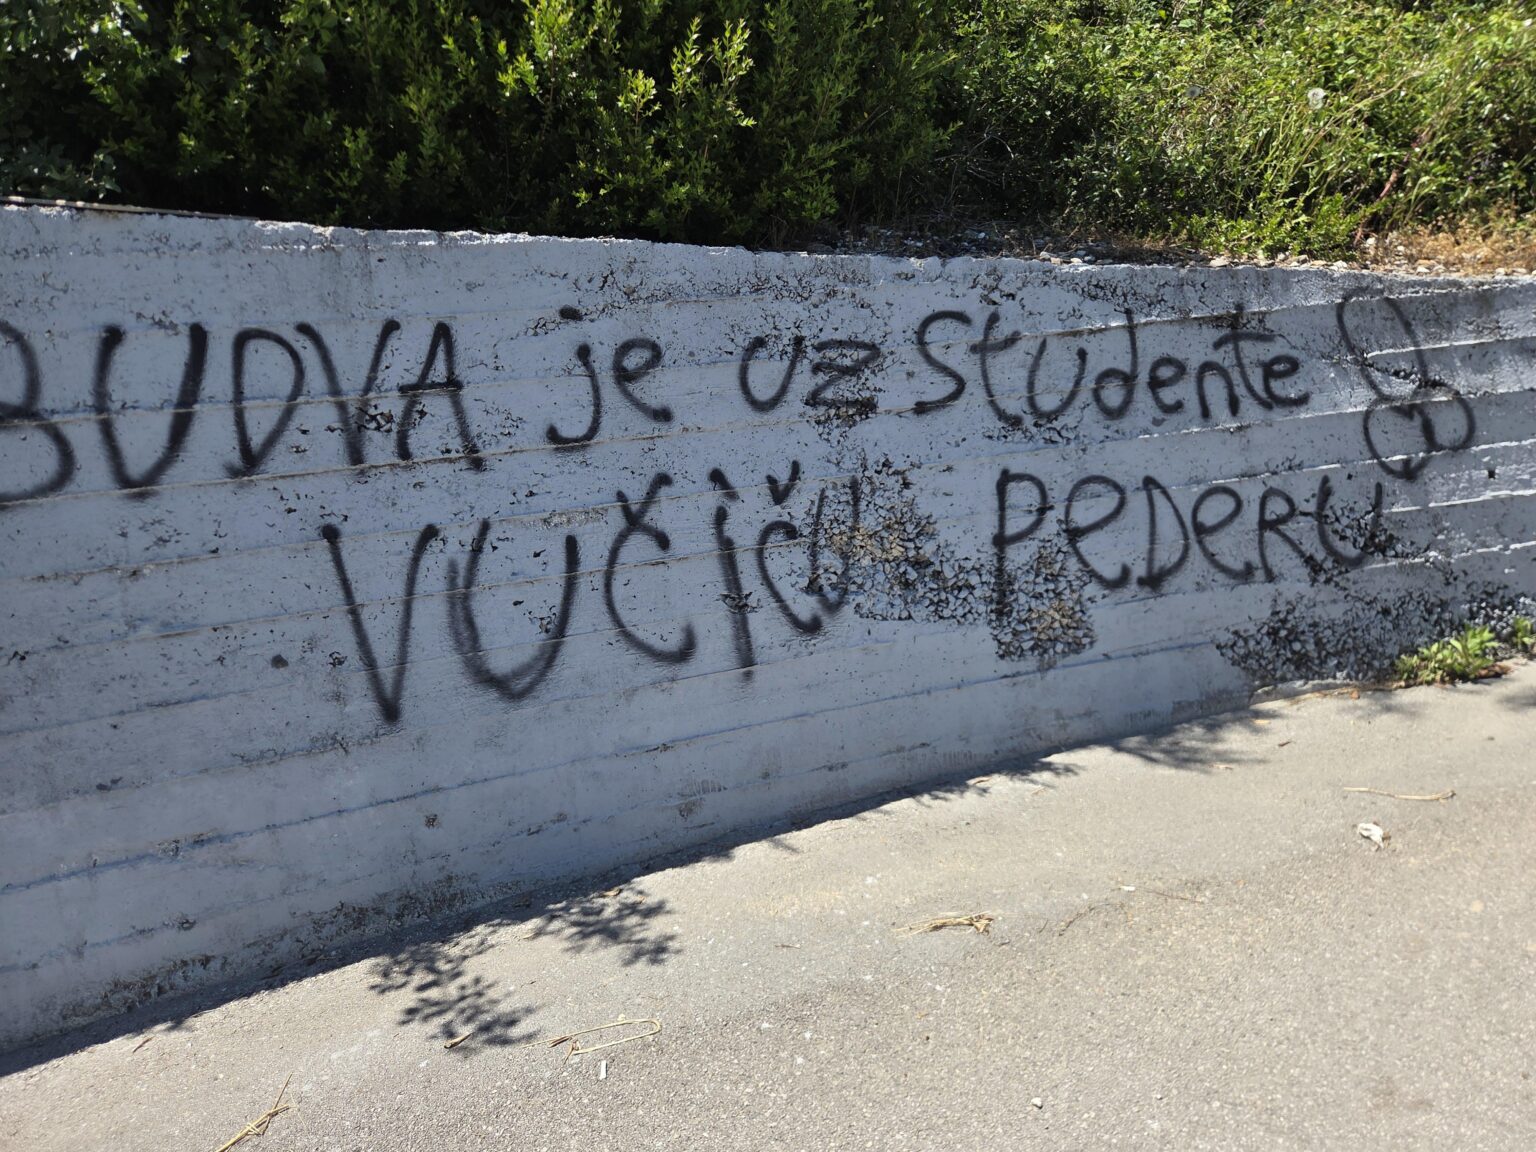 BUDVA je uz studente
VUČIČU PEDERU